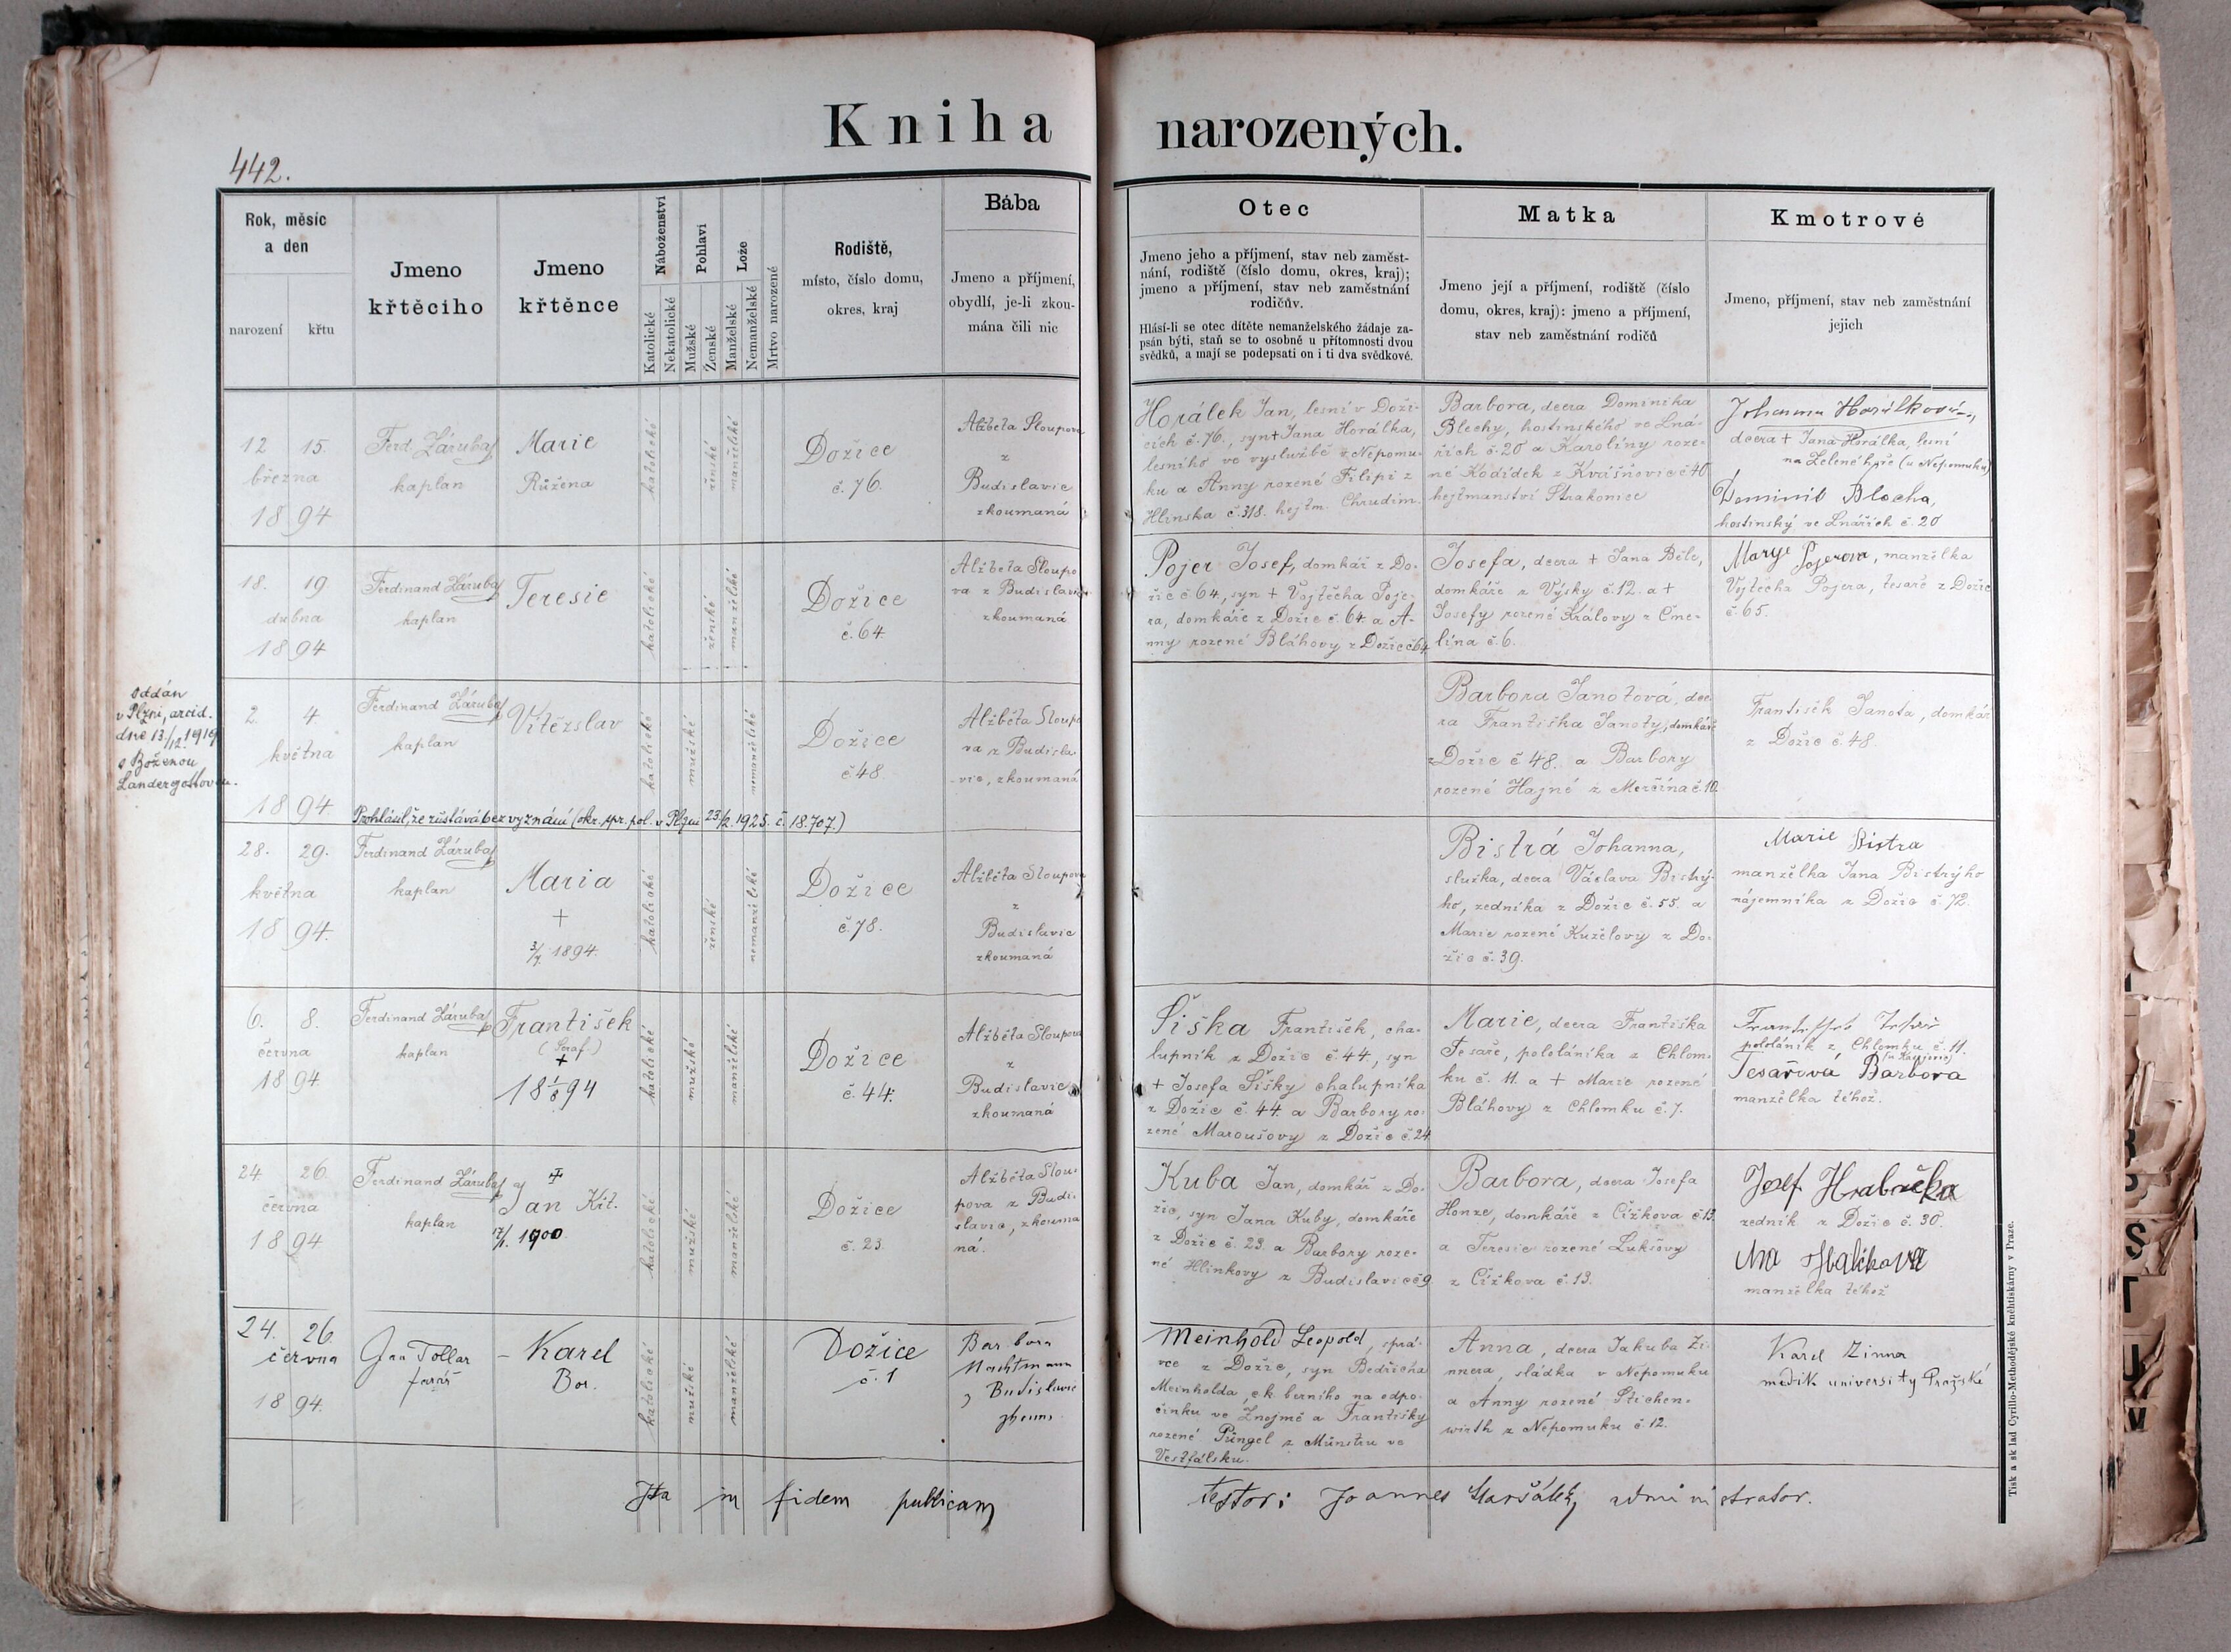 Kniha narozených.
442.
Rok, měsíc
a den
narození
křtu
Jmeno
křtěcího
Jmeno
křtěnce
Náboženství
Katolické
Nekatolické
Pohlaví
Mužské
Ženské
Lože
Manželské
Nemanželské
Mrtvo narozené
Rodiště,
místo, číslo domu,
okres, kraj
Bába
Jmeno a příjmení,
obydlí, je-li zkou-
mána čili nic
Otec
Jmeno jeho a příjmení, stav neb zaměst-
nání, rodiště (číslo domu, okres, kraj);
jmeno a příjmení, stav neb zaměstnání
rodičův.
Hlásí-li se otec dítěte nemanželského žádaje za-
psán býti, staň se to osobně u přítomnosti dvou
svědků, a mají se podepsati on i ti dva svědkové.
Matka
Jmeno její a příjmení, rodiště (číslo
domu, okres, kraj): jmeno a příjmení,
stav neb zaměstnání rodičů
Kmotrové
Jmeno, příjmení, stav neb zaměstnání
jejich
12 15.
března
1894
Ferd. Záruba
kaplan
Marie
Růžena
katolické
ženské
manželské
Dožice
č. 76.
Alžběta Sloupova
z
Budislavic
zkoumaná
Horálek Jan, lesní v Doži-
cích č. 76., syn + Jana Horálka,
lesního ve výslužbě z Nepomu-
ku a Anny rozené Filipi z
Hlinska č. 318. hejtm. Chrudim.
Barbora, dcera Dominika
Blechy, hostinského ve Lná-
řích č. 20 a Karolíny roze-
né Kodídek z Kvášňovic č 40
hejtmanství Strakonice
Johanna Horálková,
dcera + Jana Horálka, lesní
na Zelené hoře (u Nepomuku)
Dominik Blecha,
hostinský ve Lnářích č. 20
18. 19
dubna
1894
Ferdinand Záruba
kaplan
Teresie
katolické
ženské
manželské
Dožice
č. 64.
Alžběta Sloupo
va z Budislavic
zkoumaná
Pojer Josef, domkář z Do-
žic č 64, syn + Vojtěcha Poje-
ra, domkáře z Dožic č. 64. a A-
nny rozené Bláhovy z Dožic č 64.
Josefa, dcera + Jana Běle,
domkáře z Výsky č. 12. a +
Josefy rozené Královy z Čme-
lína č. 6.
Marye Pojerova, manželka
Vojtěcha Pojera, tesaře z Dožic
č. 65.
oddán
v Plzni, arcid.
dne 13./12. 1919
s Boženou
Landergottovou.
2. 4.
května
1894.
Ferdinand Záruba
kaplan
Vítězslav
katolické
mužské
nemanželské
Dožice
č 48.
Alžběta Sloupo
va z Budisla-
vic, zkoumaná
Prohlásil, že zůstává bez vyznání (okr. spr. pol. v Plzni 23/2. 1925. č. 18.707.)
Barbora Janotová, dce-
ra Františka Janoty, domkáře
z Dožic č 48. a Barbory
rozené Hajné z Merčína č. 10.
František Janota, domkář
z Dožic č. 48.
28. 29.
května
1894.
Ferdinand Záruba
kaplan
Maria
+
3/7. 1894.
katolické
ženské
nemanželské
Dožice
č. 78.
Alžběta Sloupova
z
Budislavic
zkoumaná
Bistrá Johanna,
služka, dcera Václava Bistrý-
ho, zedníka z Dožic č. 55. a
Marie rozené Kuželovy z Do-
žic č. 39.
Marie Bistra
manželka Jana Bistrýho
nájemníka z Dožic č. 72.
6. 8.
června
1894.
Ferdinand Záruba
kaplan
František
(Seraf.)
+
18 1/8 94
katolické
mužské
manželské
Dožice
č. 44.
Alžběta Sloupova
z
Budislavic
zkoumaná
Šiška František, cha-
lupník z Dožic č. 44., syn
+ Josefa Šišky chalupníka
z Dožic č. 44. a Barbory ro-
zené Maroušovy z Dožic č. 24
Marie, dcera Františka
Tesaře, pololáníka z Chlom-
ku č. 11. a + Marie rozené
Bláhovy z Chlomku č. 7.
František Tesař
pololáník z Chlomku č. 11.
Tesařová Barbora
manželka téhož.
24 26.
června
1894
Ferdinand Záruba
kaplan
+
Jan Křt.
12/1. 1900
katolické
mužské
manželské
Dožice
č. 23.
Alžběta Slou-
pova z Budi-
slavic, zkouma
ná.
Kuba Jan, domkář z Do-
žic, syn Jana Kuby, domkáře
z Dožic č. 23. a Barbory roze-
né Hlinkovy z Budislavic č 9.
Barbora, dcera Josefa
Honze, domkáře z Čížkova č. 13.
a Teresie rozené Lukšovy
z Čížkova č. 13.
Josef Hrabačka
zedník z Dožic č. 30.
manželka téhož
24. 26.
června
1894.
Jan Tollar
farář
Karel
Bor.
katolické
mužské
manželské
Dožice
č. 1
Barbora
Nachtmann
z Budislavic
zkoum.
Meinhold Leopold, sprá-
vce z Dožic, syn Bedřicha
Meinholda, c.k. berního na odpo-
činku ve Znojmě a Františky
rozené Püngel z Münstru ve
Vestfálsku.
Anna, dcera Jakuba Zi-
nnera, sládka v Nepomuku
a Anny rozené Stichen-
wirth z Nepomuku č. 12.
Karel Zinna
medik university Pražské
Ita in fidem publicam testor: Joannes Maršálek, administrator.
Tisk a sklad Cyrillo-Methodějské knihtiskárny v Praze.